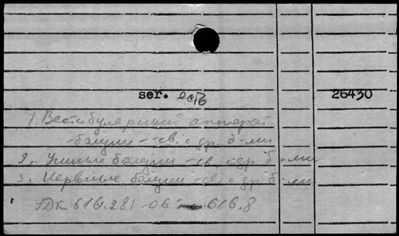 ser. 26430
1. Вестибулярный аппарат
- болезни - св. с др. б-ми
2. Ушные болезни - св. с др. б-ми
3. Нервные болезни - св. с др. б-ми
УДК 616.281-06 616.8